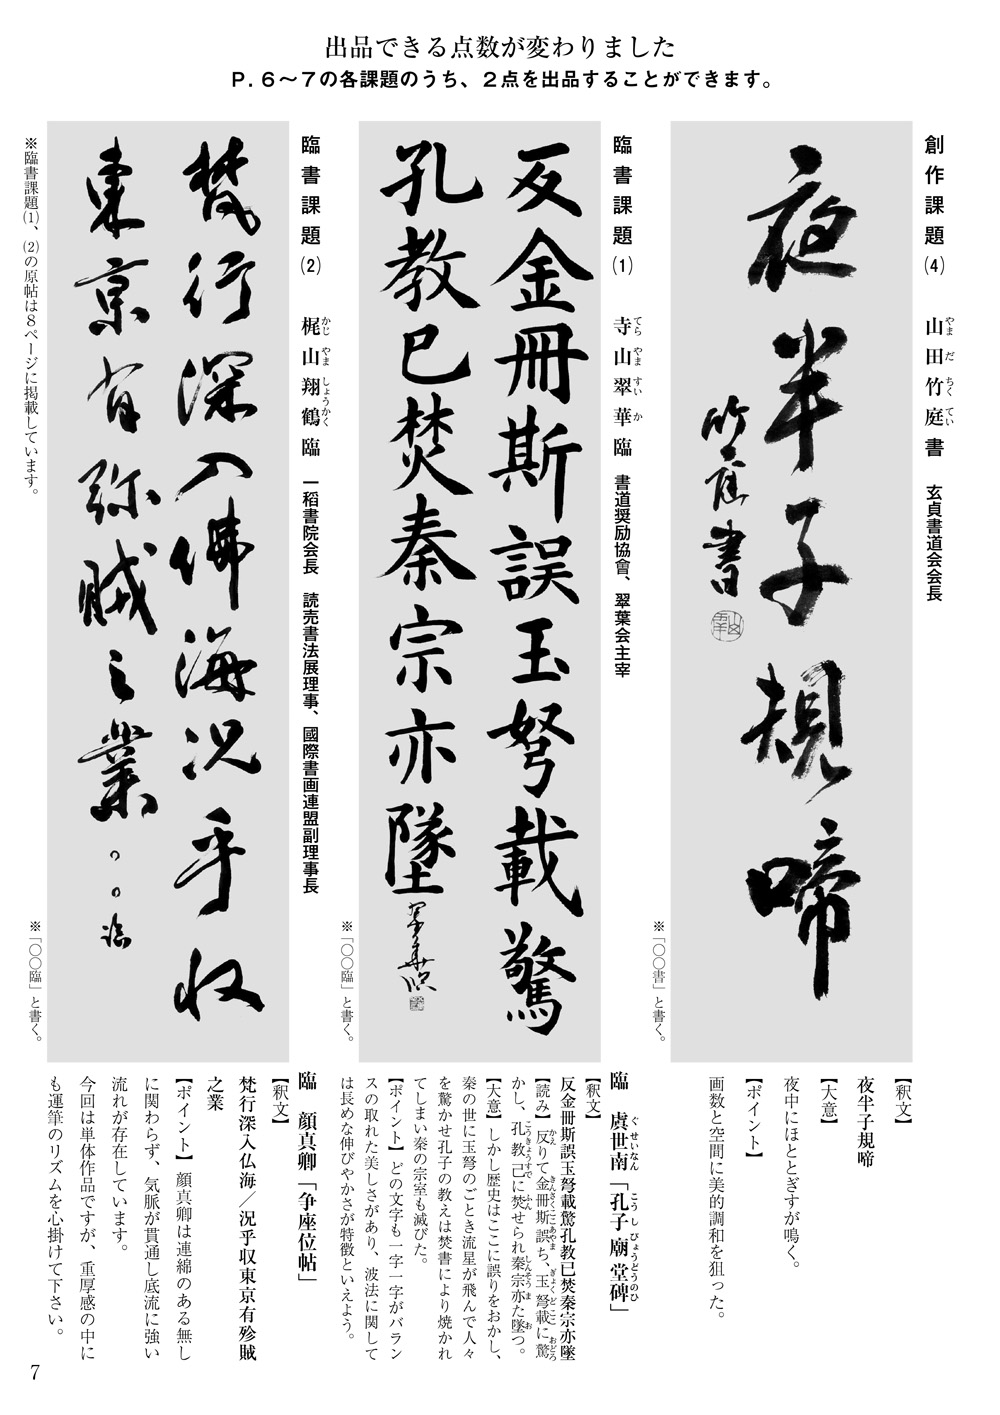 出品できる点数が変わりました
P. 6～7の各課題のうち、2点を出品することができます。
創作課題(4)　山田竹庭書　玄貞書道会会長
やまだちくてい
夜半子規啼
竹庭書
※「〇〇書」と書く。
【釈文】
夜半子規啼
【大意】
夜中にほととぎすが鳴く。
【ポイント】
画数と空間に美的調和を狙った。
臨書課題(1)　寺山翠華臨　書道奨励協會、翠葉会主宰
てらやますいか
反金冊斯誤玉弩載驚
孔教已焚秦宗亦墜
翠華臨
※「〇〇臨」と書く。
臨　虞世南「孔子廟堂碑」
ぐせいなん　こうしびょうどうのひ
【釈文】
反金冊斯誤玉弩載驚孔教已焚秦宗亦墜
【読み】反りて金冊斯誤ち、玉弩載に驚
かえ　きんさくここにあやま　ぎょくどここ　おどろ
かし、孔教已に焚せられ秦宗亦た墜つ。
こうきょうすで　ふん　しんそうま　お
【大意】しかし歴史はここに誤りをおかし、
秦の世に玉弩のごとき流星が飛んで人々
を驚かせ孔子の教えは焚書により焼かれ
てしまい秦の宗室も滅びた。
【ポイント】どの文字も一字一字がバラン
スの取れた美しさがあり、波法に関して
は長めな伸びやかさが特徴といえよう。
臨書課題(2)　梶山翔鶴臨　一稻書院会長　読売書法展理事、國際書画連盟副理事長
かじやましょうかく
梵行深入佛海况乎収
東京有殄賊之業
〇〇臨
※「〇〇臨」と書く。
※臨書課題(1)、(2)の原帖は8ページに掲載しています。
臨　顔真卿「争座位帖」
【釈文】
梵行深入仏海／況乎収東京有殄賊
之業
【ポイント】顔真卿は連綿のある無し
に関わらず、気脈が貫通し底流に強い
流れが存在しています。
今回は単体作品ですが、重厚感の中に
も運筆のリズムを心掛けて下さい。
7